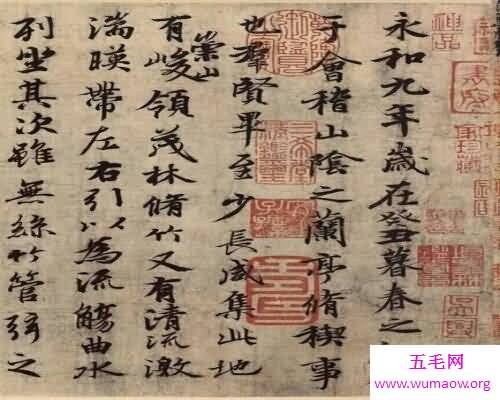 神品
永和九年歲在癸丑暮春之
于會稽山陰之蘭亭脩稧事
也羣賢畢至少長咸集此地
有崇山峻領茂林脩竹又有清流激
湍暎帶左右引以為流觴曲水
列坐其次雖無絲竹管弦之
五毛网
www.wumaow.org